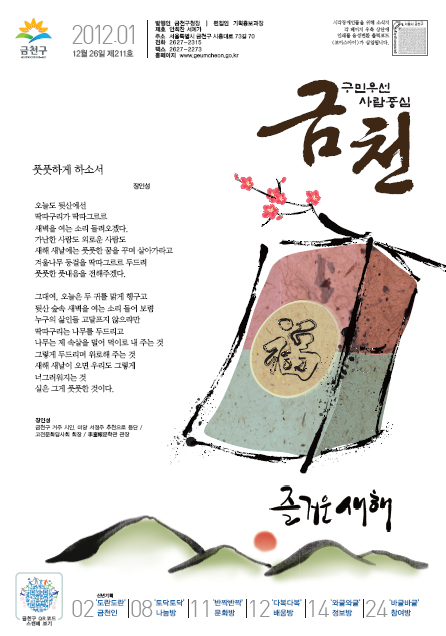 금천구
2012.01
12월 26일 제211호
발행인 금천구청장 | 편집인 기획홍보과장
제호 안희진 서예가
주소 서울특별시 금천구 시흥대로 73길 70
전화 2627-2315
팩스 2627-2273
홈페이지 www.geumcheon.go.kr
시각장애인을 위해 소식지
각 페이지 우측 상단에
인쇄물 음성변환 출력코드
(보이스아이)가 삽입됩니다.
구민우선
사람중심
금천
풋풋하게 하소서
장인성
오늘도 뒷산에선
딱따구리가 딱따그르르
새벽을 여는 소리 들려오겠다.
가난한 사람도 외로운 사람도
새해 새날에는 풋풋한 꿈을 꾸며 살아가라고
겨울나무 등걸을 딱따그르르 두드려
풋풋한 풋내음을 전해주겠다.
그대여, 오늘은 두 귀를 밝게 헹구고
뒷산 숲속 새벽을 여는 소리 들어 보렴
누구의 삶인들 고달프지 않으랴만
딱따구리는 나무를 두드리고
나무는 제 속살을 떨어 먹이로 내 주는 것
그렇게 두드리며 위로해 주는 것
새해 새날이 오면 우리도 그렇게
너그러워지는 것
실은 그게 풋풋한 것이다.
장인성
금천구 거주 시인, 미당 서정주 추천으로 등단 /
고전문화답사회 회장 /
福
즐거운 새해
금천구 QR코드
스캔해 보기
신년기획
02 '도란도란' 금천인
08 '토닥토닥' 나눔방
11 '반짝반짝' 문화방
12 '다복다복' 배움방
14 '와글와글' 정보방
24 '바글바글' 참여방